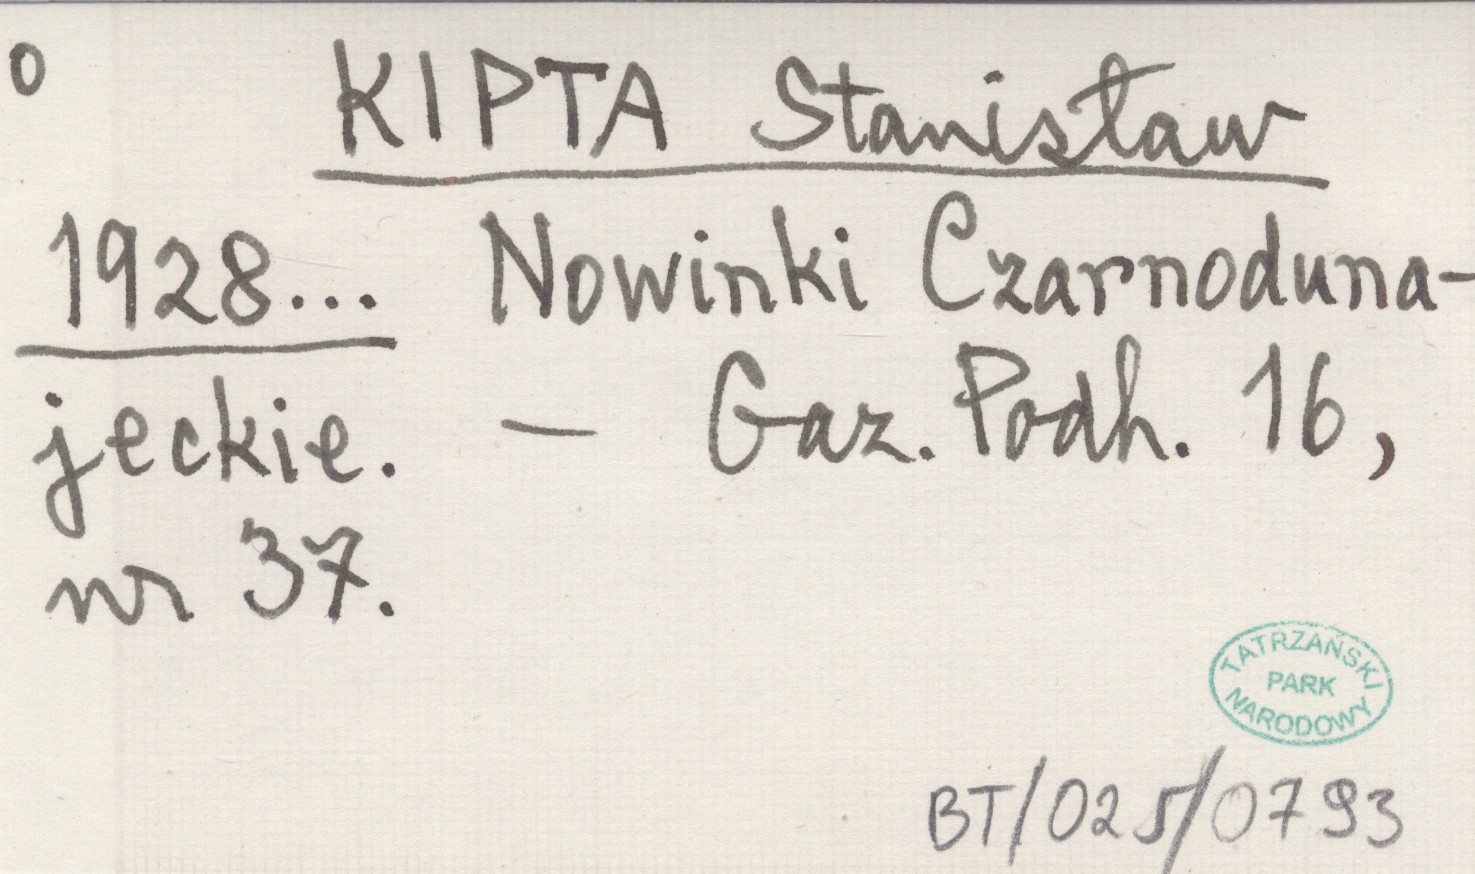 o
KIPTA Stanisław
1928... Nowinki Czarnoduna-
jeckie. — Gaz. Podh. 16,
nr 37.
TATRZAŃSKI
PARK
NARODOWY
BT/025/0793